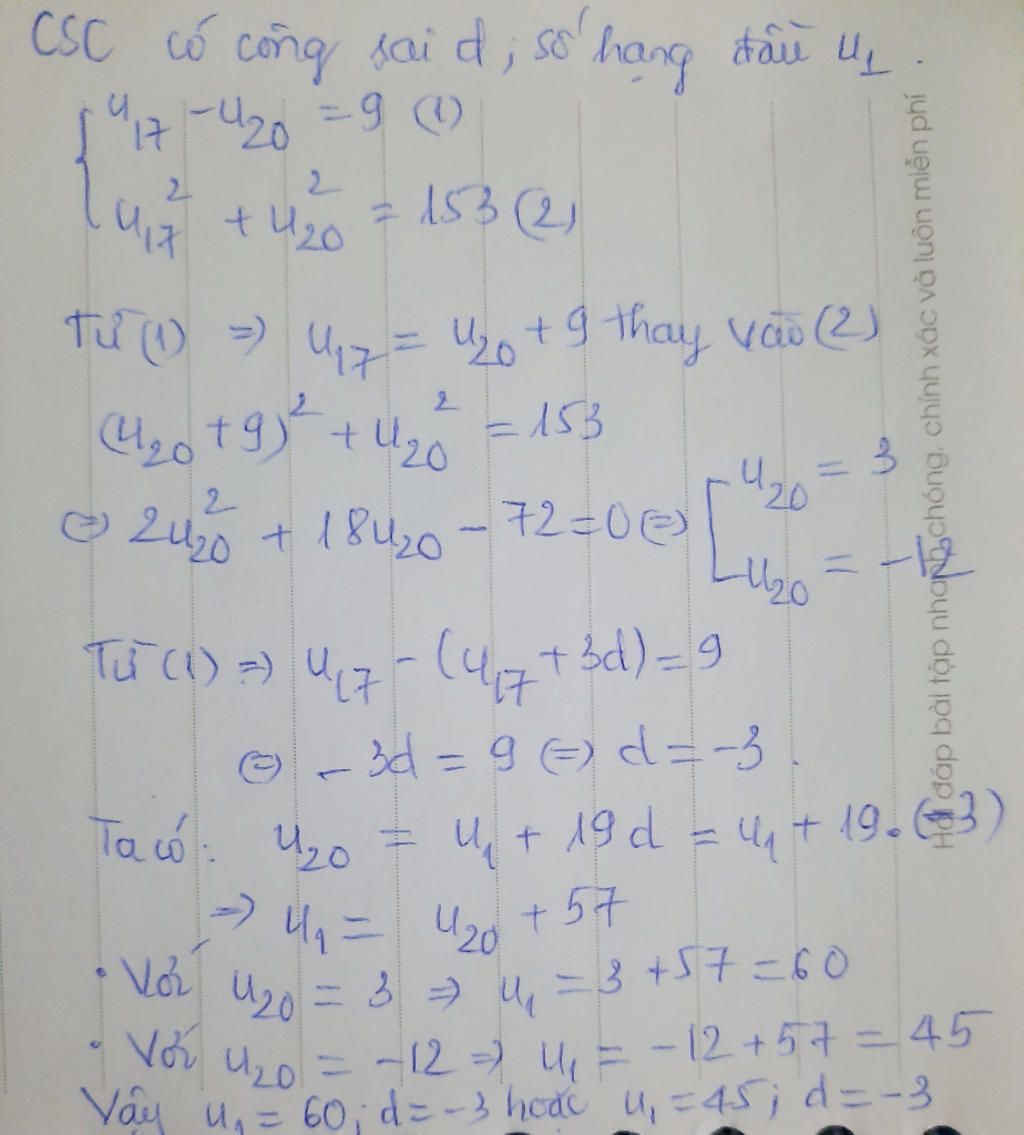 CSC có công sai d; số hạng đầu u₁.
u₁₇ - u₂₀ = 9 (1)
u₁₇² + u₂₀² = 153 (2)
Từ (1) => u₁₇ = u₂₀ + 9 thay vào (2)
(u₂₀ + 9)² + u₂₀² = 153
<=> 2u₂₀² + 18u₂₀ - 72 = 0 <=> [ u₂₀ = 3
u₂₀ = -12
Từ (1) => u₁₇ - (u₁₇ + 3d) = 9
<=> - 3d = 9 <=> d = -3.
Ta có: u₂₀ = u₁ + 19d = u₁ + 19.(-3)
=> u₁ = u₂₀ + 57
• Với u₂₀ = 3 => u₁ = 3 + 57 = 60
• Với u₂₀ = -12 => u₁ = -12 + 57 = 45
Vậy u₁ = 60; d = -3 hoặc u₁ = 45; d = -3
Hỏi đáp bài tập nhanh chóng, chính xác và luôn miễn phí